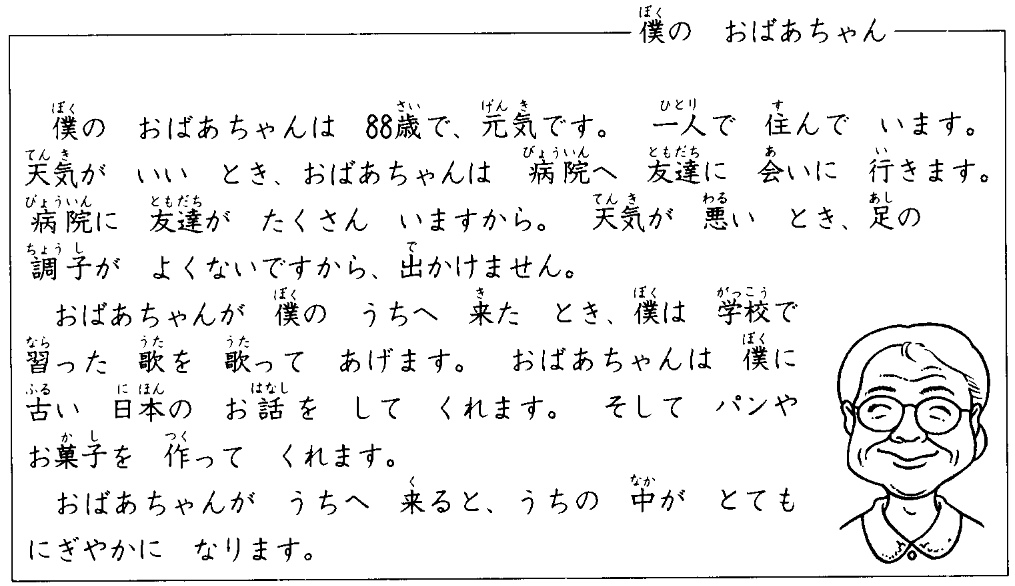 僕の　おばあちゃん
僕の　おばあちゃんは　88歳で、元気です。　一人で　住んで　います。
天気が　いい　とき、おばあちゃんは　病院へ　友達に　会いに　行きます。
病院に　友達が　たくさん　いますから。　天気が　悪い　とき、足の
調子が　よくないですから、出かけません。
おばあちゃんが　僕の　うちへ　来た　とき、僕は　学校で
習った　歌を　歌って　あげます。　おばあちゃんは　僕に
古い　日本の　お話を　して　くれます。　そして　パンや
お菓子を　作って　くれます。
おばあちゃんが　うちへ　来ると、うちの　中が　とても
にぎやかに　なります。